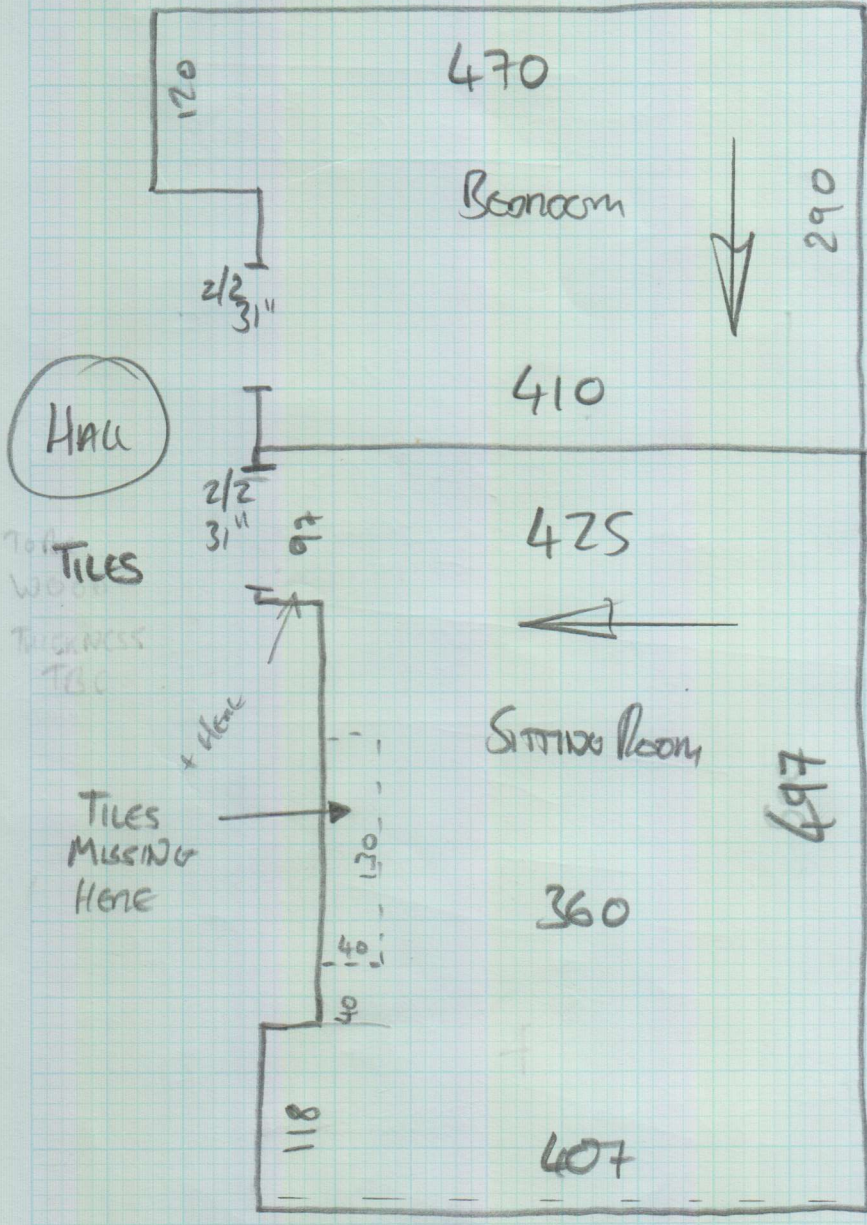 470
120
Bedroom
290
2/2
31"
410
HALL
2/2
31"
97
425
TILES
WOOD
THICKNESS
+ HERE
SITTING ROOM
497
TILES
MISSING
HERE
130
360
40
40
118
407